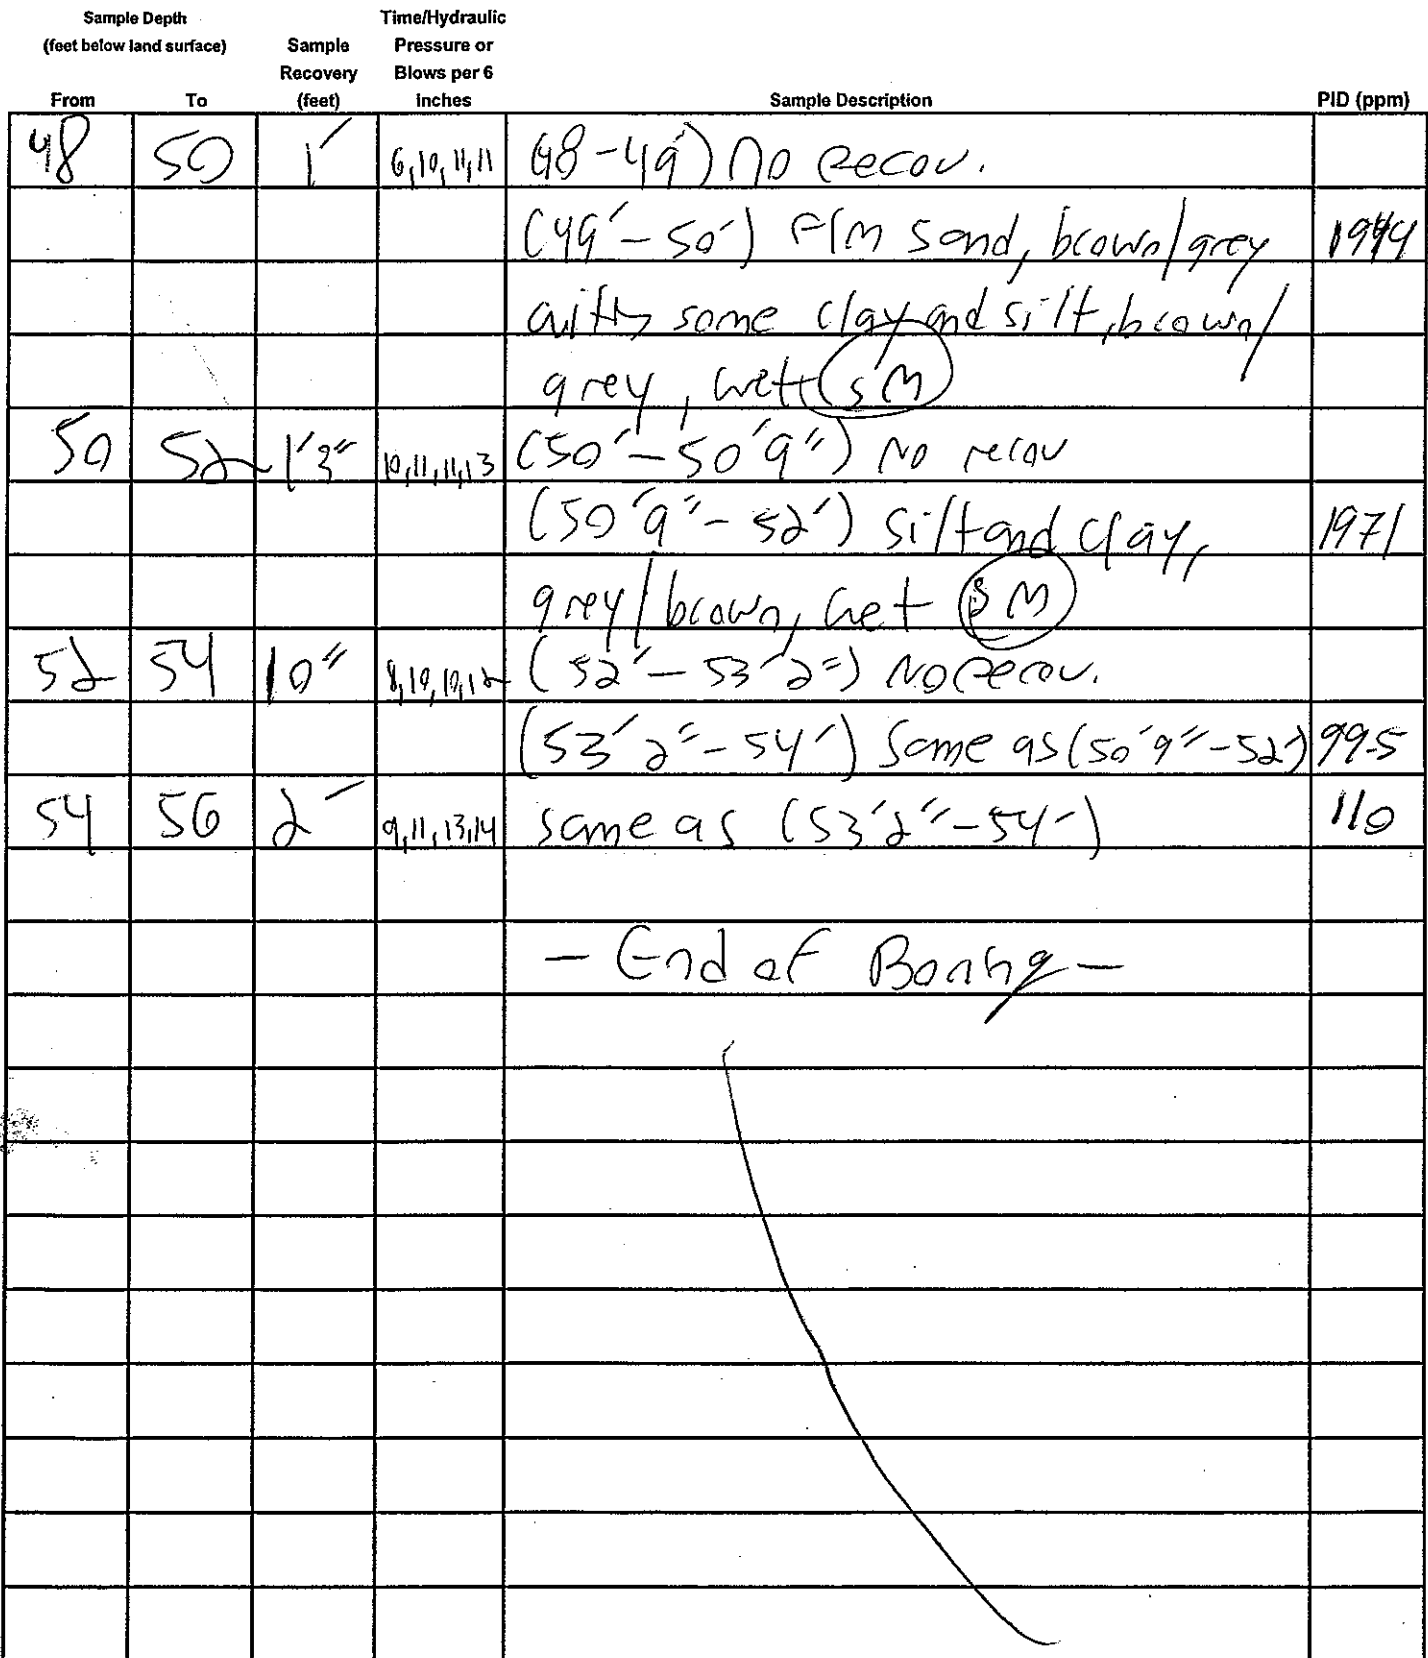 Sample Depth
(feet below land surface)
Sample Recovery (feet)
Time/Hydraulic Pressure or Blows per 6 inches
From To Sample Description PID (ppm)
48 50 1' 6,10,11,11 (48-49') No recov.
(49'-50') F/M sand, brown/grey
with some clay and silt, brown/
grey, wett SM
50 52 1'3" 10,11,11,13 (50'-50'9") No recov
(50'9"-52') silt and clay, 1971
grey/brown, wet SM
52 54 10" 8,10,10,12 (52'-53'2") No recov.
(53'2"-54') Same as (50'9"-52') 99.5
54 56 2' 9,11,13,14 same as (53'2"-54') 110
- End of Boring -